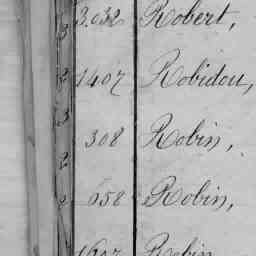 3.032 Robert,
1407 Robidou,
308 Robin,
658 Robin,
Robin